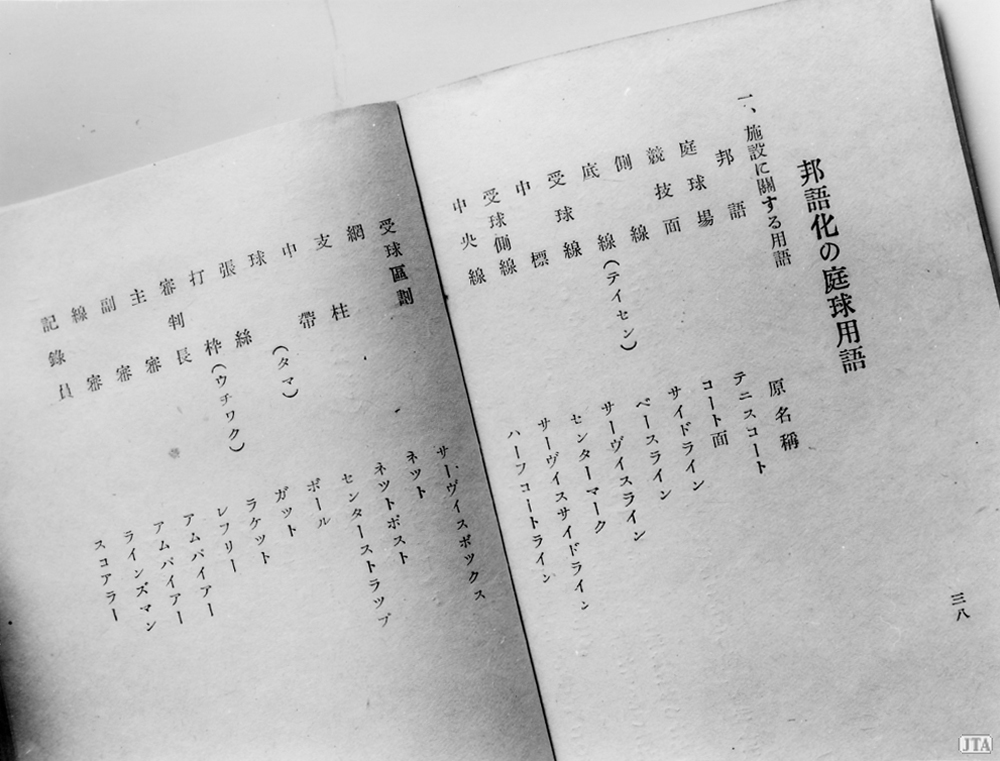 邦語化の庭球用語
一、施設に關する用語
邦語 原名稱
庭球場 テニスコート
競技面 コート面
側線 サイドライン
底線(テイセン) ベースライン
受球線 サーヴイスライン
中標 センターマーク
受球側線 サーヴイスサイドライン
中央線 ハーフコートライン
三八
受球區劃 サーヴイスボツクス
網 ネツト
支柱 ネツトポスト
中帶 センターストラツプ
球(タマ) ボール
張絲 ガツト
打枠(ウチワク) ラケツト
審判長 レフリー
主審 アムパイアー
副審 アムパイアー
線審 ラインズマン
記錄員 スコアラー
JTA